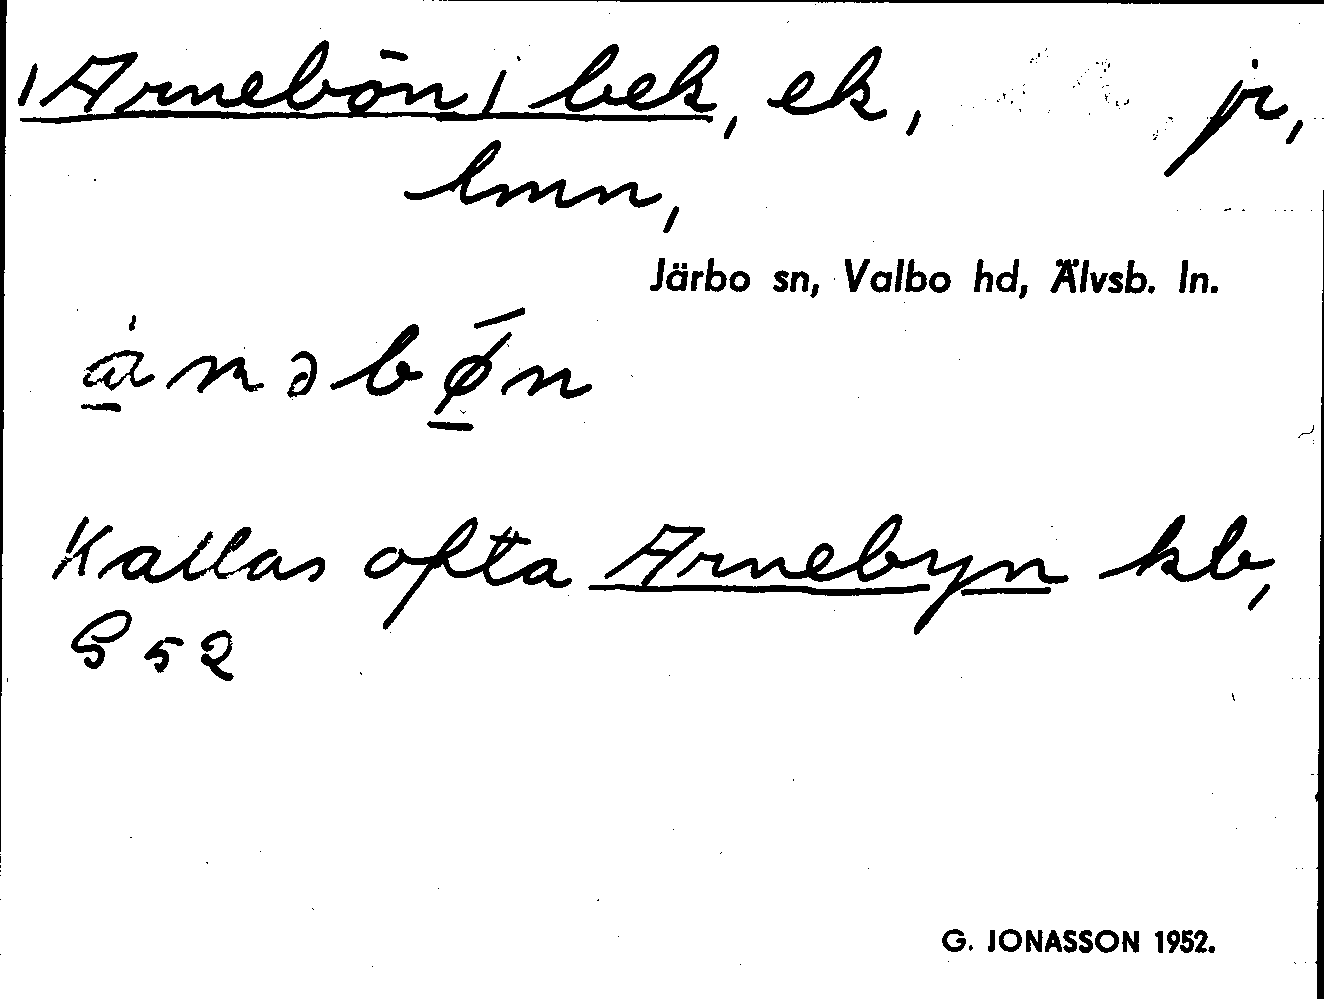 (Arnebön) bek, ek, jr,
lmn,
Järbo sn, Valbo hd, Älvsb. ln.
a̱̍nəbǿ̱n
Kallas ofta Arnebyn kb,
S 52
G. JONASSON 1952.